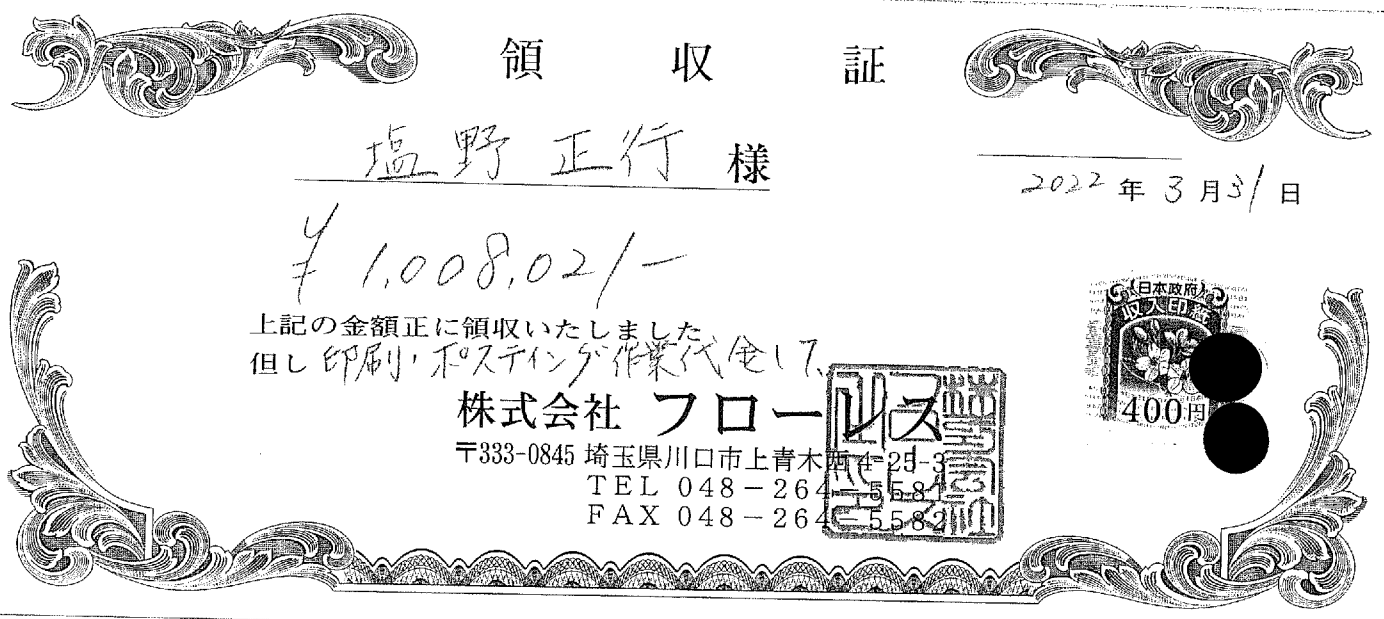 領収証
塩野 正行 様
2022年3月31日
¥1,008,021-
日本政府
収入印紙
400円
上記の金額正に領収いたしました
但し 印刷・ポスティング作業代金として
株式会社 フローレス
〒333-0845 埼玉県川口市上青木西4-25-3
TEL 048-264-5581
FAX 048-264-5582